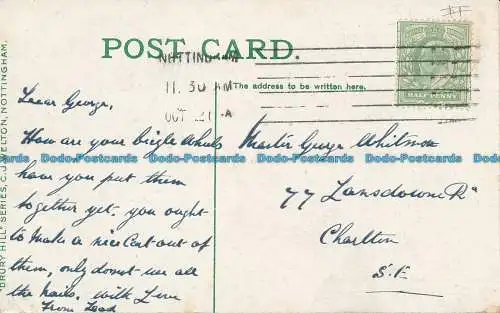 POST CARD.
NOTTINGHAM
11.30 AM
OCT 21
The address to be written here.
HALF PENNY
"DRURY HILL" SERIES, C.J. WELTON, NOTTINGHAM.
Dear George,
How are your bicycle wheels
have you put them
together yet. you ought
to make a nice Cart out of
them, only donot use all
the nails. with Love
from
Master George Whitmore
77 Lansdowne Rd
Charlton
S.E
Dodo-Postcards Dodo-Postcards Dodo-Postcards Dodo-Postcards Dodo-Postcards